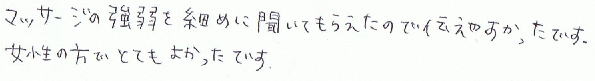 マッサージの強弱を細めに聞いてもらえたので伝えやすかったです。
女性の方でとてもよかったです。